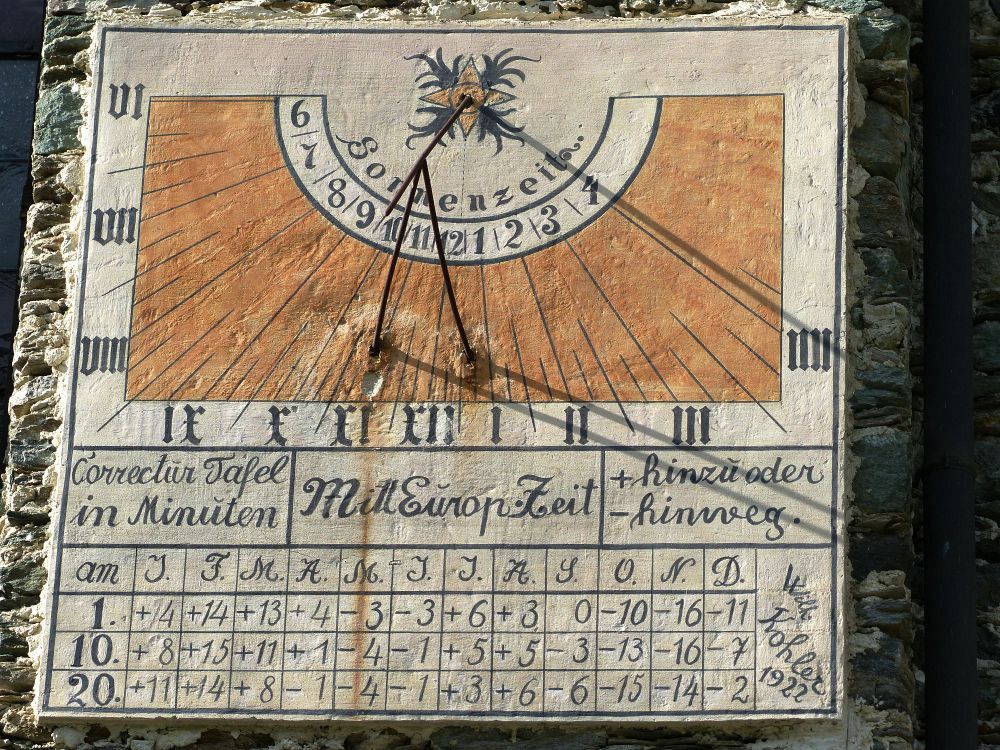 VI
6
7
8
9
10
11
12
1
2
3
4
Sonnenzeit
VII
VIII
IIII
IX X XI XII I II III
Correctur Tafel
in Minuten
Mitt Europ. Zeit
+ hinzu oder
- hinweg.
am J. F. M. A. M. J. J. A. S. O. N. D.
1. +4 +14 +13 +4 -3 -3 +6 +3 0 -10 -16 -11
10. +8 +15 +11 +1 -4 -1 +5 +5 -3 -13 -16 -7
20. +11 +14 +8 -1 -4 -1 +3 +6 -6 -15 -14 -2
Kohler
1922